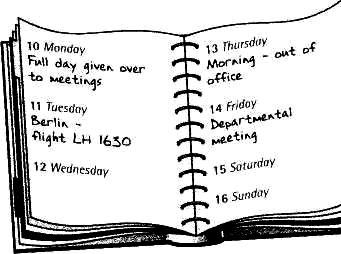 10 Monday
Full day given over
to meetings
11 Tuesday
Berlin -
flight LH 1630
12 Wednesday
13 Thursday
Morning - out of
office
14 Friday
Departmental
meeting
15 Saturday
16 Sunday